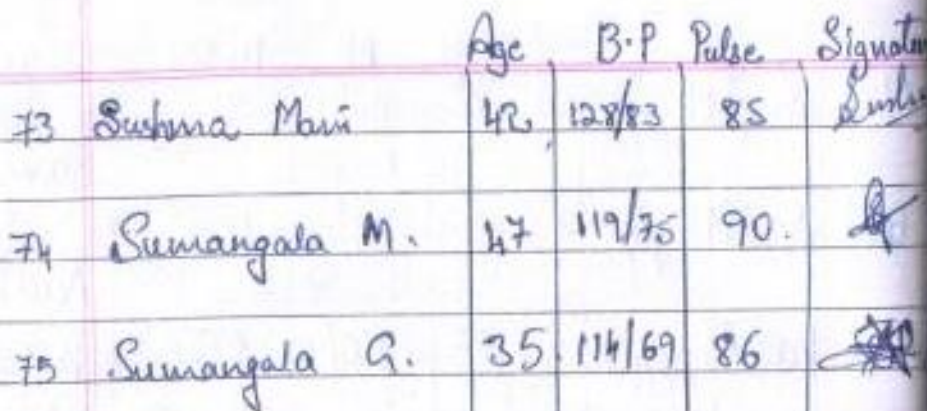 Age B.P Pulse Signatur
73 Sushma 42 128/83 85
74 Sumangala M. 47 119/75 90.
75 Sumangala G. 35 114/69 86